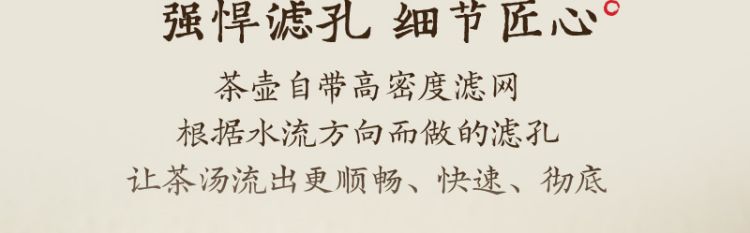 强悍滤孔 细节匠心
茶壶自带高密度滤网
根据水流方向而做的滤孔
让茶汤流出更顺畅、快速、彻底